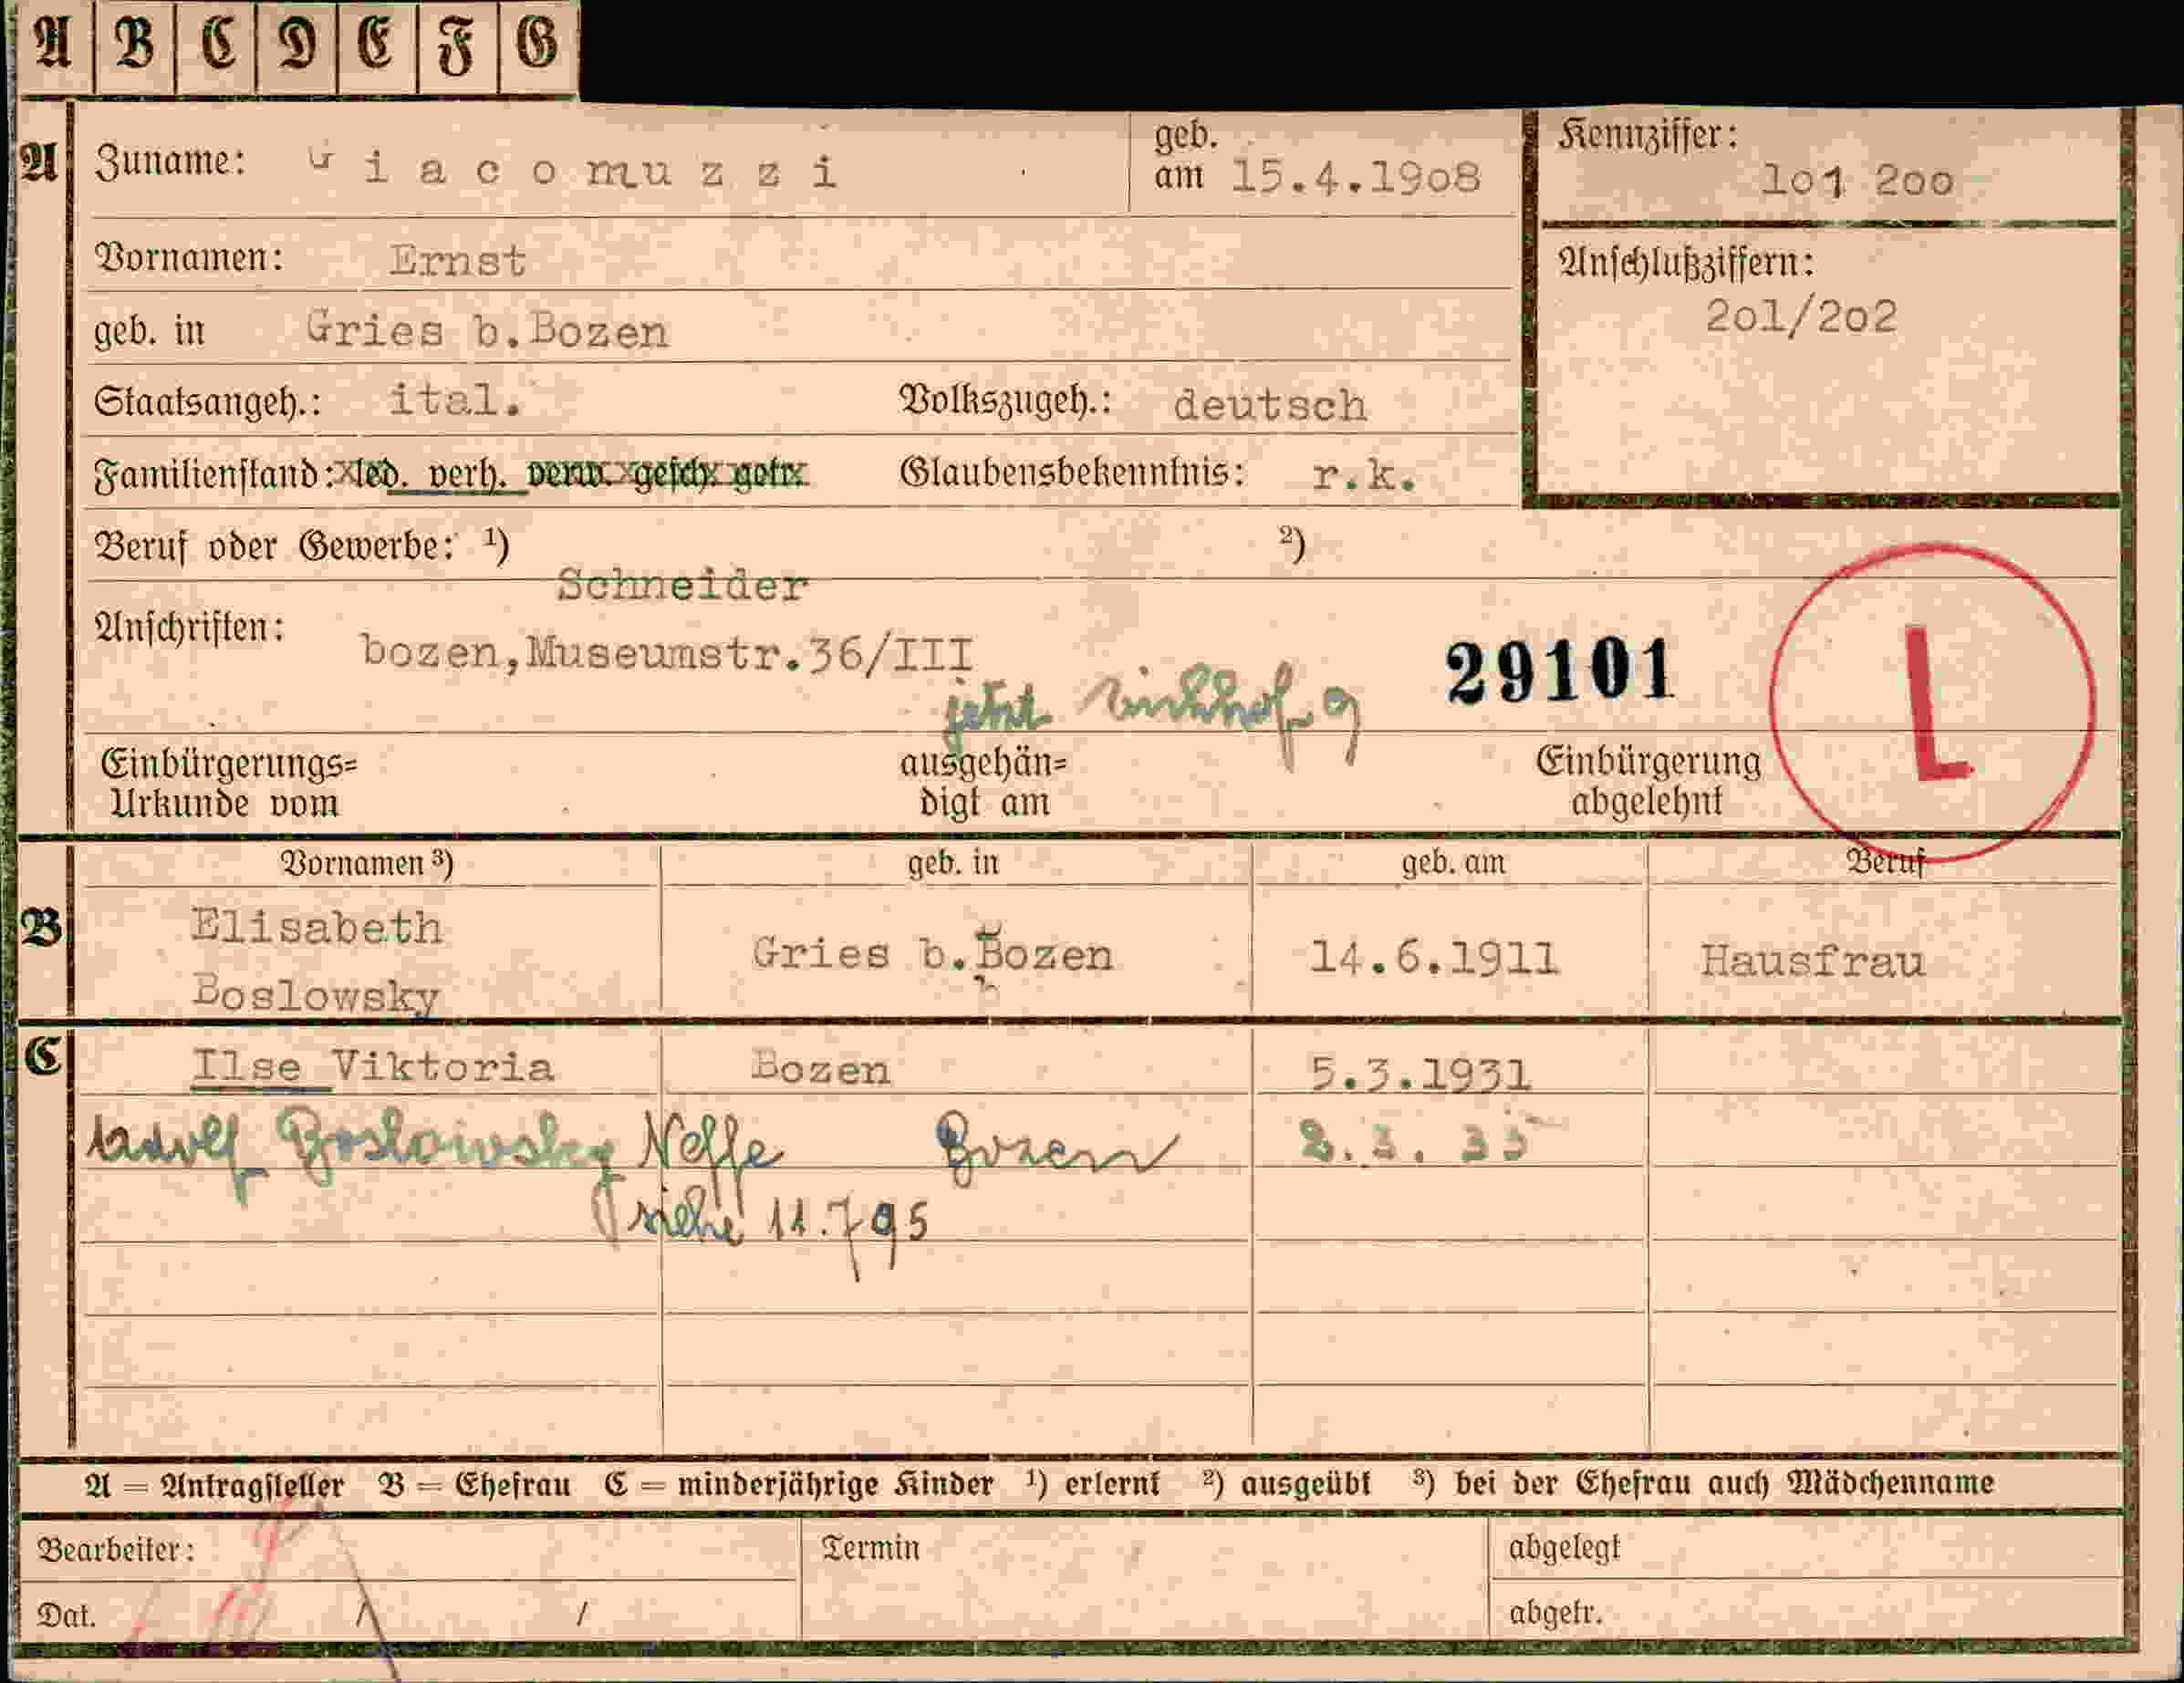 A B C D E F G
A Zuname: Giacomuzzi geb. am 15.4.1908 Kennziffer: 101 200
Vornamen: Ernst Anschlußziffern: 201/202
geb. in Gries b.Bozen
Staatsangeh.: ital. Volkszugeh.: deutsch
Familienstand: led. verh. verw. gesch. getr. Glaubensbekenntnis: r.k.
Beruf oder Gewerbe: ¹) Schneider ²)
Anschriften: bozen,Museumstr.36/III
jetzt 29101 L
Einbürgerungs= ausgehän= Einbürgerung
Urkunde vom digt am abgelehnt
Vornamen ³) geb. in geb. am Beruf
B Elisabeth Gries b.Bozen 14.6.1911 Hausfrau
Boslowsky
C Ilse Viktoria Bozen 5.3.1931
Boslowsky Neffe Bozen
siehe 11.795
A = Antragsteller B = Ehefrau C = minderjährige Kinder ¹) erlernt ²) ausgeübt ³) bei der Ehefrau auch Mädchenname
Bearbeiter: Termin abgelegt
Dat. / abgetr.